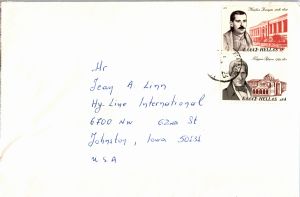 Mr
Jean A Linn
Hy-Line International
6700 NW 62nd St
Johnston, Iowa 50131
USA
ΕΛΛΑΣ HELLAS
ΕΛΛΑΣ HELLAS